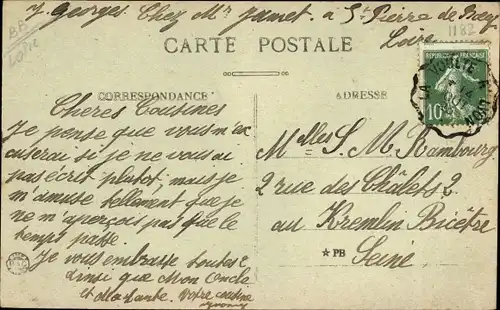 J. Georges Chez Mr Jamet. a St Pierre de Bœuf
Loire
BP
Loire
1182
CARTE POSTALE
CORRESPONDANCE
ADRESSE
REPUBLIQUE FRANÇAISE
10
Cheres Cousines
Je pense que vous m'ex
cuserai si je ne vous ai
pas écrit plutot, mais je
m'amuse tellement que je
ne m'aperçois pas que le
temps passe
Je vous embrasse toutes 2
ainsi que Mon Oncle
et ma tante. Votre cousine
Melles S. M. Rambourg
2 rue des Châlets 2
au Kremlin Bicêtre
Seine
★ PB